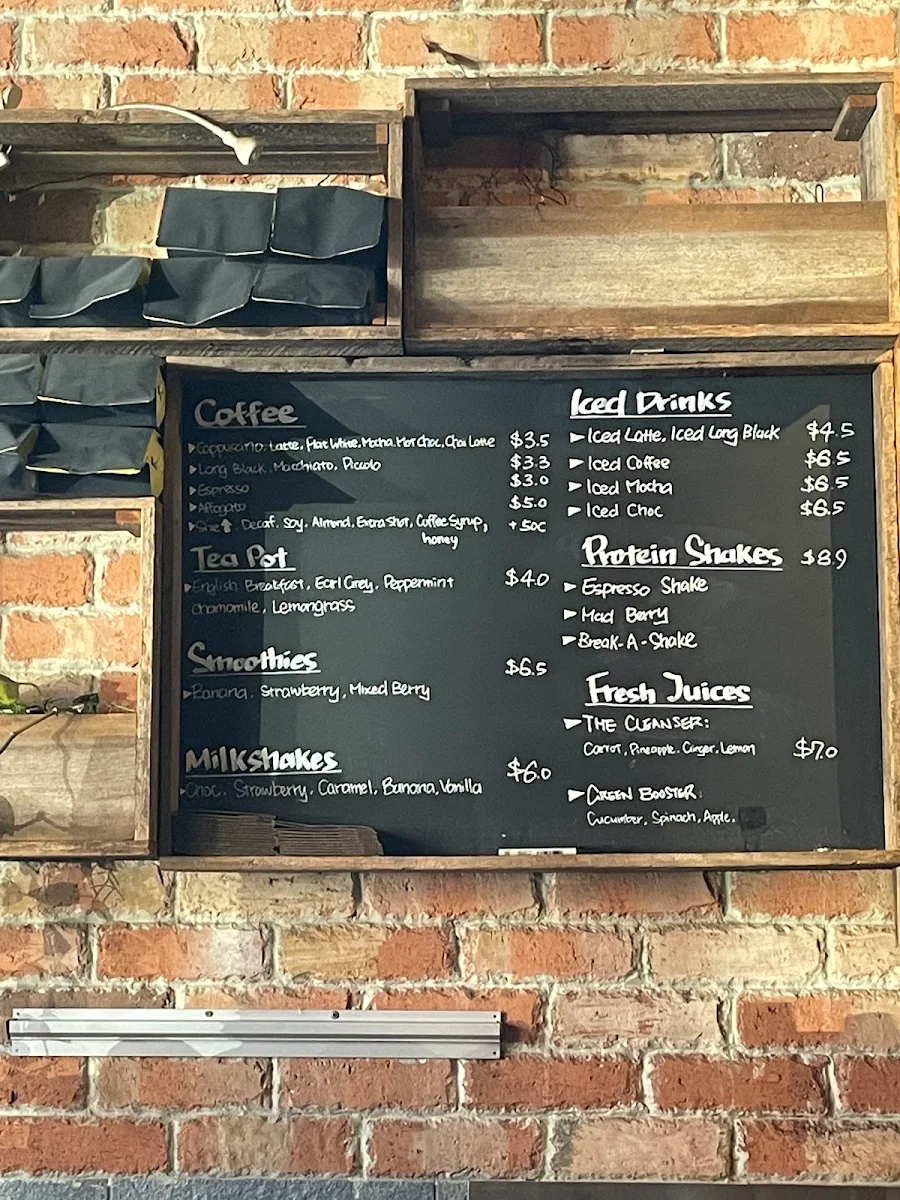 Coffee
Cappuccino, Latte, Flat White, Mocha, Hot Choc, Chai Latte $3.5
Long Black, Macchiato, Piccolo $3.3
Espresso $3.0
Affogato $5.0
Size ⇧ Decaf, Soy, Almond, Extra Shot, Coffee Syrup, +50c
honey
Tea Pot
English Breakfast, Earl Grey, Peppermint $4.0
Chamomile, Lemongrass
Smoothies $6.5
Banana, Strawberry, Mixed Berry
Milkshakes $6.0
Choc, Strawberry, Caramel, Banana, Vanilla
Iced Drinks
Iced Latte, Iced Long Black $4.5
Iced Coffee $6.5
Iced Mocha $6.5
Iced Choc $6.5
Protein Shakes $8.9
Espresso Shake
Mad Berry
Break-A-Shake
Fresh Juices
THE CLEANSER:
Carrot, Pineapple, Ginger, Lemon $7.0
GREEN BOOSTER:
Cucumber, Spinach, Apple,